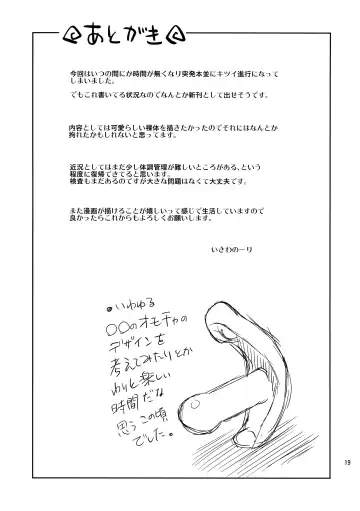 あとがき
今回はいつの間にか時間が無くなり突発本並にキツイ進行になって
しまいました。
でもこれ書いてる状況なのでなんとか新刊として出せそうです。
内容としては可愛らしい裸体を描きたかったのでそれにはなんとか
拘れたかもしれないと思ってます。
近況としてはまだ少し体調管理が難しいところがある、という
程度に復帰できてると思います。
検査もまだあるのですが大きな問題はなくて大丈夫です。
また漫画が描けることが嬉しいって感じで生活していますので
良かったらこれからもよろしくお願いします。
いさわのーり
•いわゆる
〇〇のオモチャの
デザインを
考えてみたりとか
わりと楽しい
時間だな
思うこの頃
でした。
19